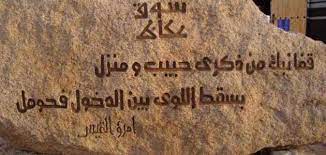 سوق
عكاظ
قفا نبك من ذكرى حبيب و منزل
بسقط اللوى بين الدخول فحومل
امرؤ القيس